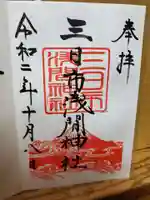 奉拝
三日市浅間神社
令和二年十月